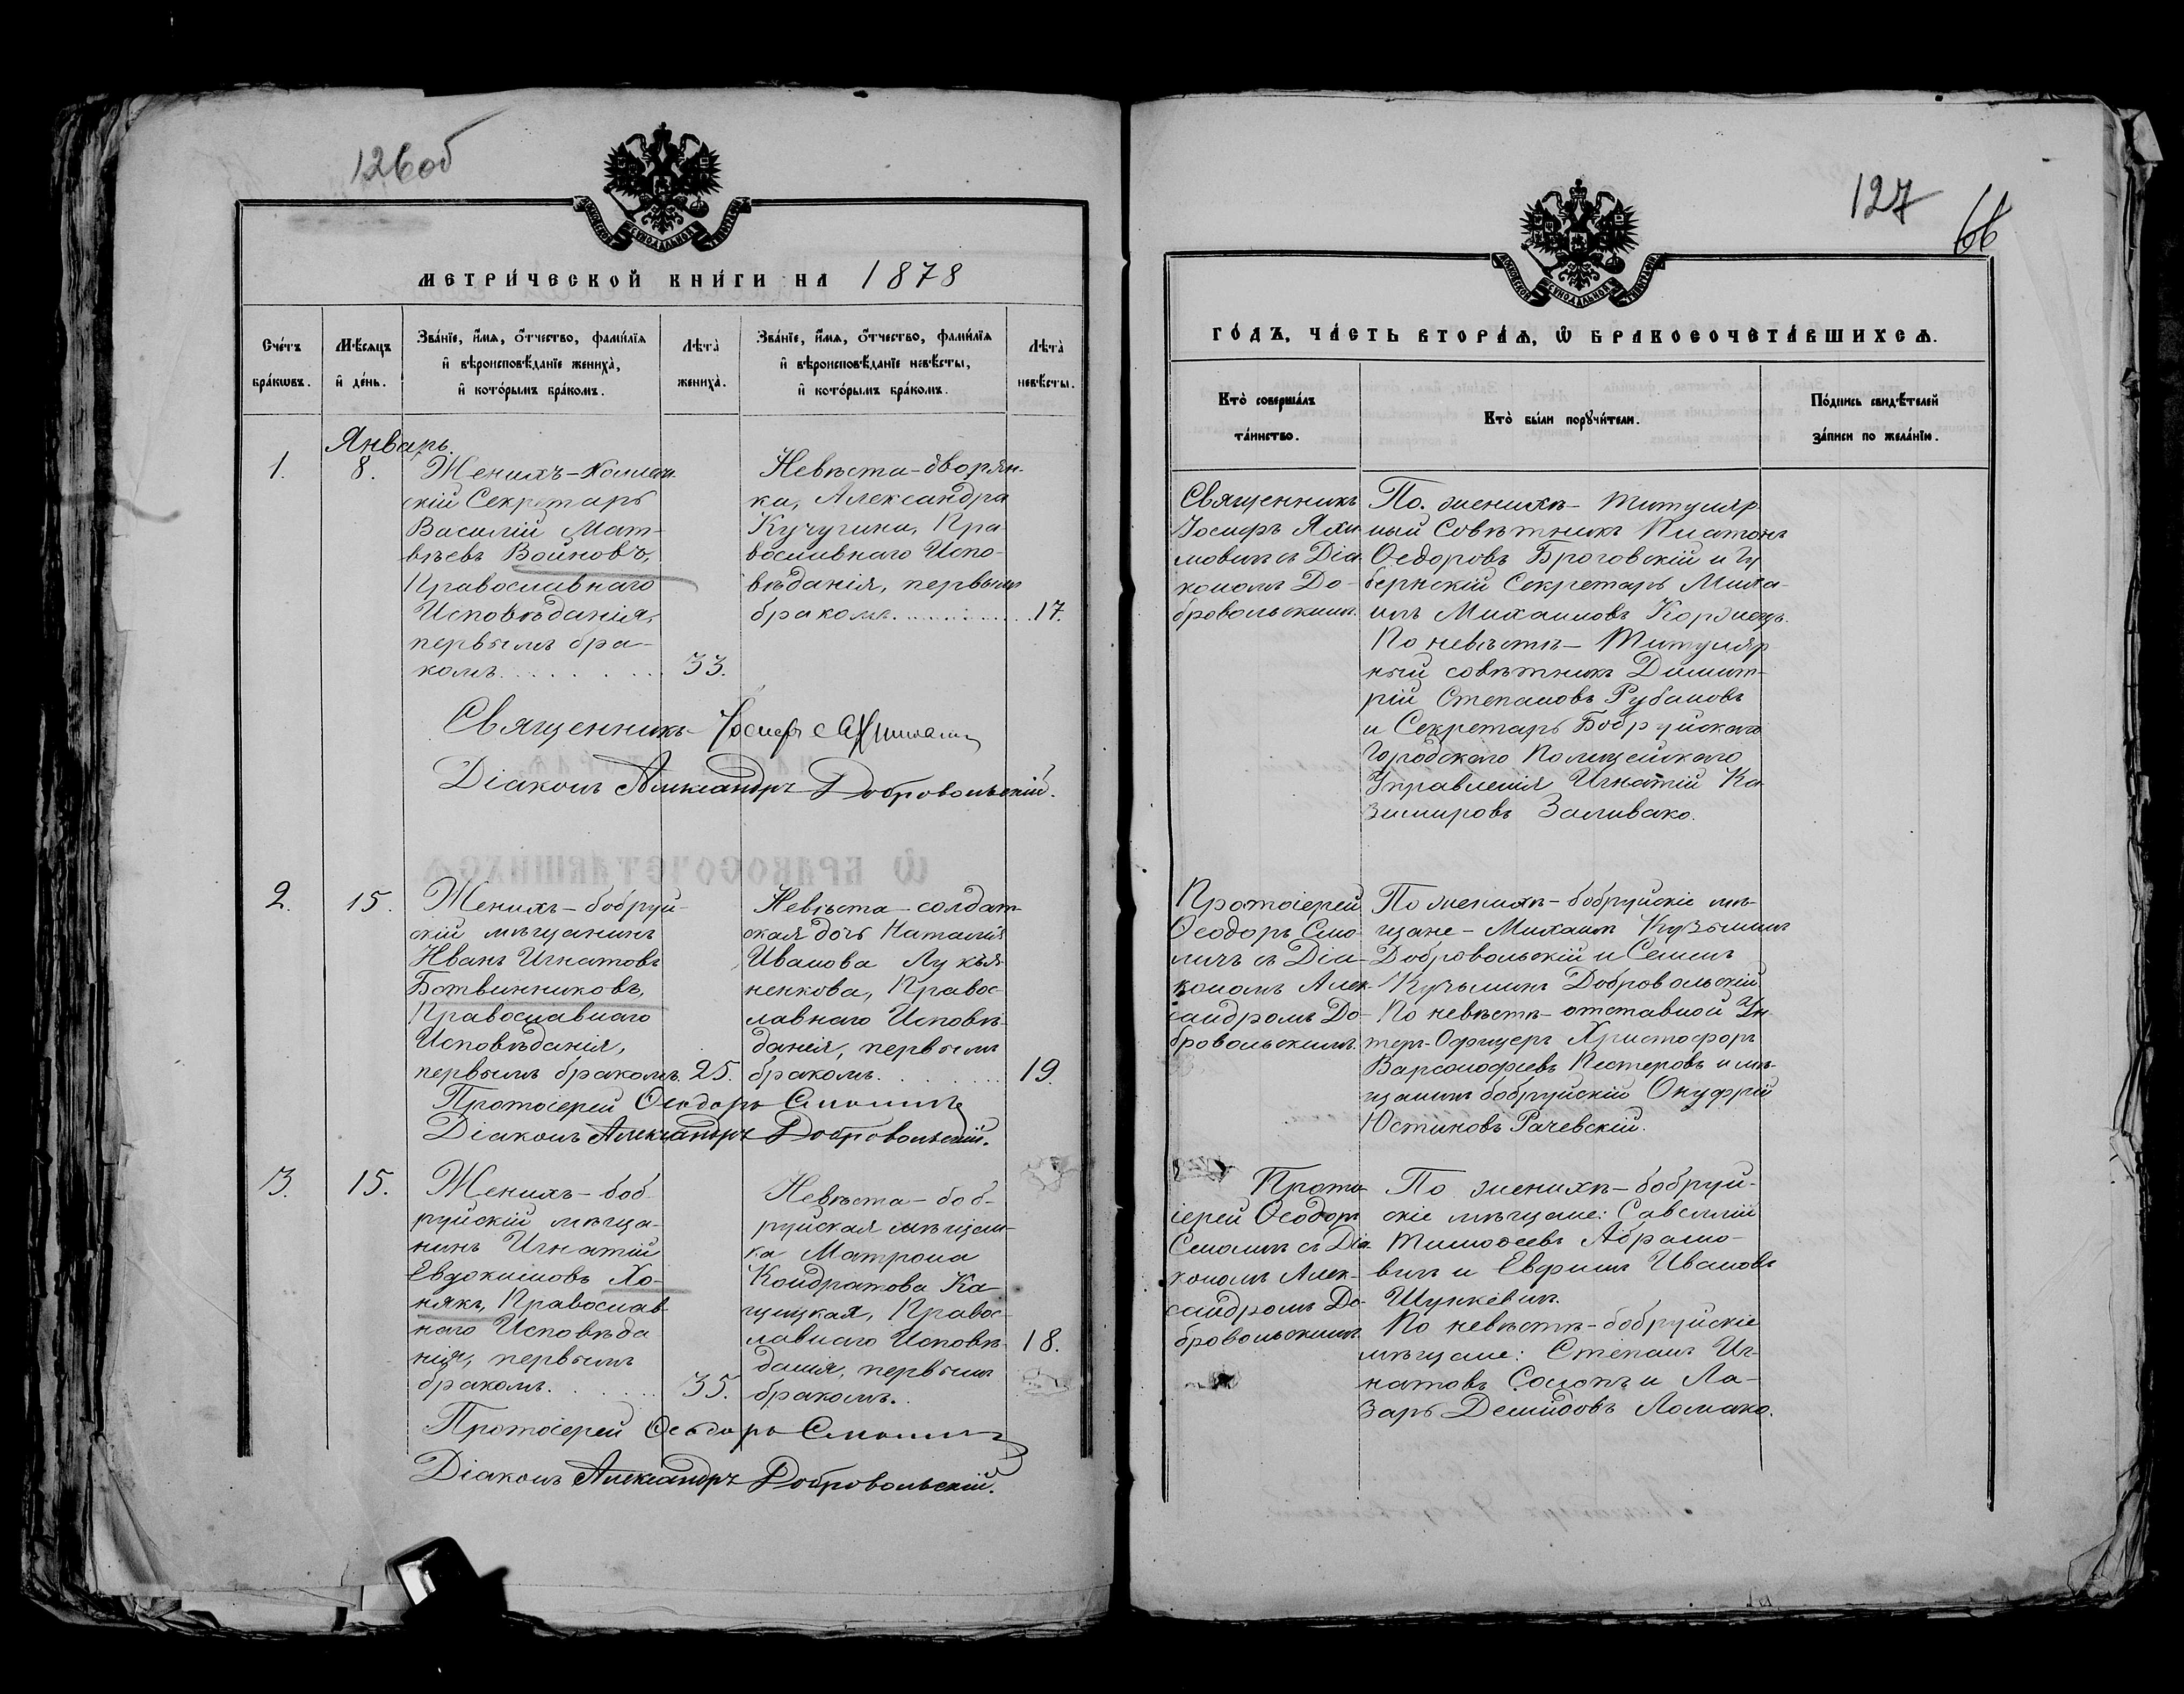 126об
МОСКОВСКОЙ СУНОДАЛЬНОЙ ТИПОГРАФІИ
МЕТРИ́ЧЕСКОЙ КНИ́ГИ НА 1878
Сче́тъ бра́кωвъ.
Мѣ́сяцъ и҆ де́нь.
Зва́нїе, и҆́мѧ, ѻ҆́тчество, фами́лїѧ
и҆ вѣроисповѣ́данїе жениха̀,
и҆ кото́рымъ бра́комъ.
Лѣта̀ жениха̀.
Зва́нїе, и҆́мѧ, ѻ҆́тчество, фами́лїѧ
и҆ вѣроисповѣ́данїе невѣ́сты,
и҆ кото́рымъ бра́комъ.
Лѣта̀ невѣ́сты.
Январь.
1.
8.
Женихъ - Коллеж-
скій Секретарь
Василій Мат-
вѣевъ Войновъ,
Православнаго
Исповѣданія,
первымъ бра-
комъ.
33.
Невѣста - дворян-
ка, Александра
Кучугина, Пра
вославнаго Испо-
вѣданія, первымъ
бракомъ.
17.
Священникъ Іосифъ
Діаконъ Александръ Добровольскій.
2.
15.
Женихъ - бобруй-
скій мѣщанинъ
Иванъ Игнатовъ
Ботвинниковъ,
Православнаго
Исповѣданія,
первымъ бракомъ.
25.
Невѣста - солдат-
ская дочь Наталія
Иванова Лукья-
ненкова, Правос-
лавнаго Исповѣ-
данія, первымъ
бракомъ.
19.
Протоіерей Ѳеодоръ Смоличъ
Діаконъ Александръ Добровольскій.
3.
15.
Женихъ - боб-
руйскій мѣща-
нинъ Игнатій
Евдокимовъ Хо-
някъ, Православ-
наго Исповѣда
нія, первымъ
бракомъ.
35.
Невѣста - боб-
руйская мѣщан-
ка Матрона
Кондратова Ка-
щицкая, Правос-
лавнаго Исповѣ-
данія, первымъ
бракомъ.
18.
Протоіерей Ѳеодоръ Смоличъ
Діаконъ Александръ Добровольскій.
127
66
МОСКОВСКОЙ СУНОДАЛЬНОЙ ТИПОГРАФІИ
ГО́ДЪ, ЧА́СТЬ ВТОРА́Ѧ, Ѽ БРАКОСОЧЕТА́ВШИХСѦ.
Кто̀ соверша́лъ
та́инство.
Кто̀ бы́ли порꙋчи́тели.
По́дпись свидѣ́телей
за́писи по жела́нїю.
Священникъ
Іосифъ Яхи
мовичъ съ Діа
кономъ До-
бровольскимъ.
По женихѣ - Титуляр
ный Совѣтникъ Платонъ
Ѳедоровъ Броговскій и Гу
бернскій Секретарь Миха-
илъ Михаиловъ
По невѣстѣ - Титуляр
ный совѣтникъ Димит-
рій Степановъ Рубановъ
и Секретарь Бобруйскаго
Городскаго Полицейскаго
Управленія Игнатій Ка
зимировъ Заливако.
Протоіерей
Ѳеодоръ Смо
личъ съ Діа-
кономъ Алек-
сандромъ До-
бровольскимъ.
По женихѣ - бобруйскіе мѣ-
щане - Михаилъ Кузьминъ
Добровольскій и Семенъ
Кузьминъ Добровольскій
По невѣстѣ - отставной Ун-
теръ-Офицеръ Христофоръ
Варсонофіевъ Нестеровъ и мѣ-
щанинъ бобруйскій Онуфрій
Юстиновъ Рачевскій.
Прото-
іерей Ѳеодоръ
Смоличъ съ Діа
кономъ Алек-
сандромъ До-
бровольскимъ
По женихѣ - бобруй-
скіе мѣщане: Савеллій
Тимоѳеевъ Абрамо-
вичъ и Евфимъ Ивановъ
Шункевичъ.
По невѣстѣ - бобруйскіе
мѣщане: Степанъ Иг-
натовъ Солопъ и Ла-
зарь Демидовъ Ломако.